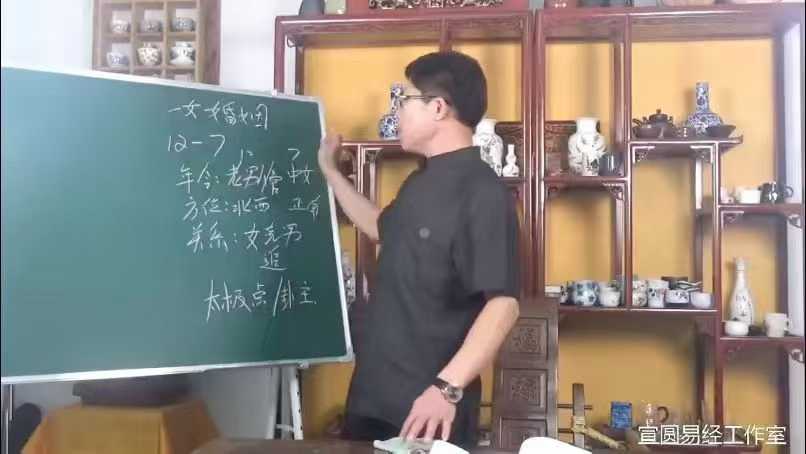 一女婚姻
12-7
12 7
年令:老男/官 中女
方位:北西 正南
关系:女克男
追
太极点/卦主
宣圆易经工作室